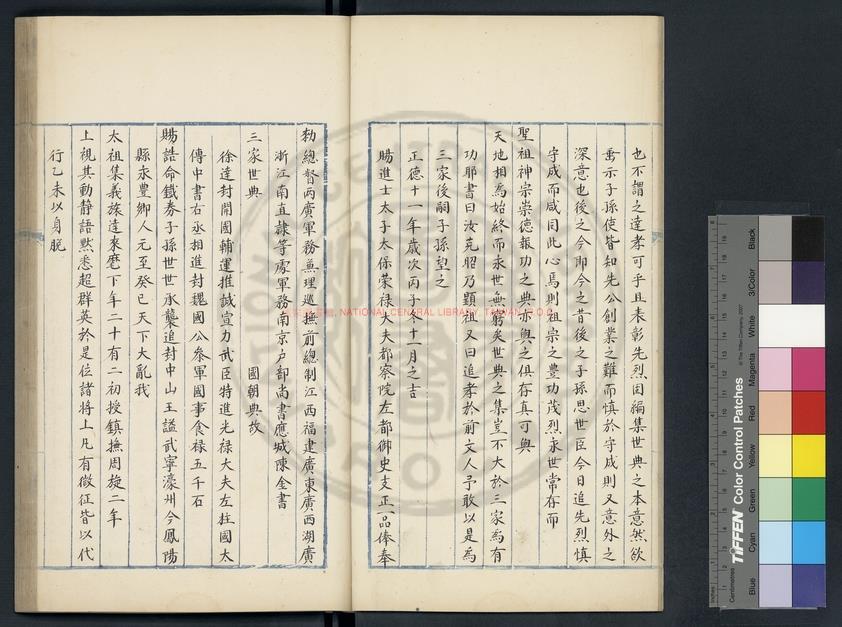 也不謂之達孝可乎且表彰先烈因編集世典之本意然欲
啇示子孫使皆知先公創業之難而慎於守成則又意外之
深意也後之今即今之昔後之子孫思世臣今日追先烈慎
守成而咸囿此心焉則祖宗之豐功茂烈永世常存而
聖祖神宗崇德報功之典亦與之俱存真可與
天地相為始終而永世無窮矣世典之集豈不大於三家為有
功耶書曰汝克昭乃顯祖又曰追孝於前文人予敢以是為
三家後嗣子孫望之
正德十一年歲次丙子冬十一月之吉
賜進士太子太保榮祿大夫都察院左都御史支正一品俸奉
勑總督兩廣軍務兼理巡撫前總制江西福建廣東廣西湖廣
浙江南直隸等處軍務南京户部尚書應城陳金書
三家世典 國朝典故
徐達封開國輔運推誠宣力武臣特進光祿大夫左柱國太
傅中書右丞相進封魏國公叅軍國事食祿五千石
賜誥命鐵券子孫世世承襲追封中山王謚武寧濠州今鳳陽
縣永豐鄉人元至癸巳天下大亂我
太祖集義旅達來麾下年二十有二初授鎮撫周旋二年
上視其動静語默悉超群英於是位諸將上凡有徵征皆以代
行乙未以身脫
NATIONAL CENTRAL LIBRARY, TAIWAN, R.O.C
TIFFEN Color Control Patches
© The Tiffen Company, 2007
Centimetres
Inches
Blue
Cyan
Green
Yellow
Red
Magenta
White
3/Color
Black